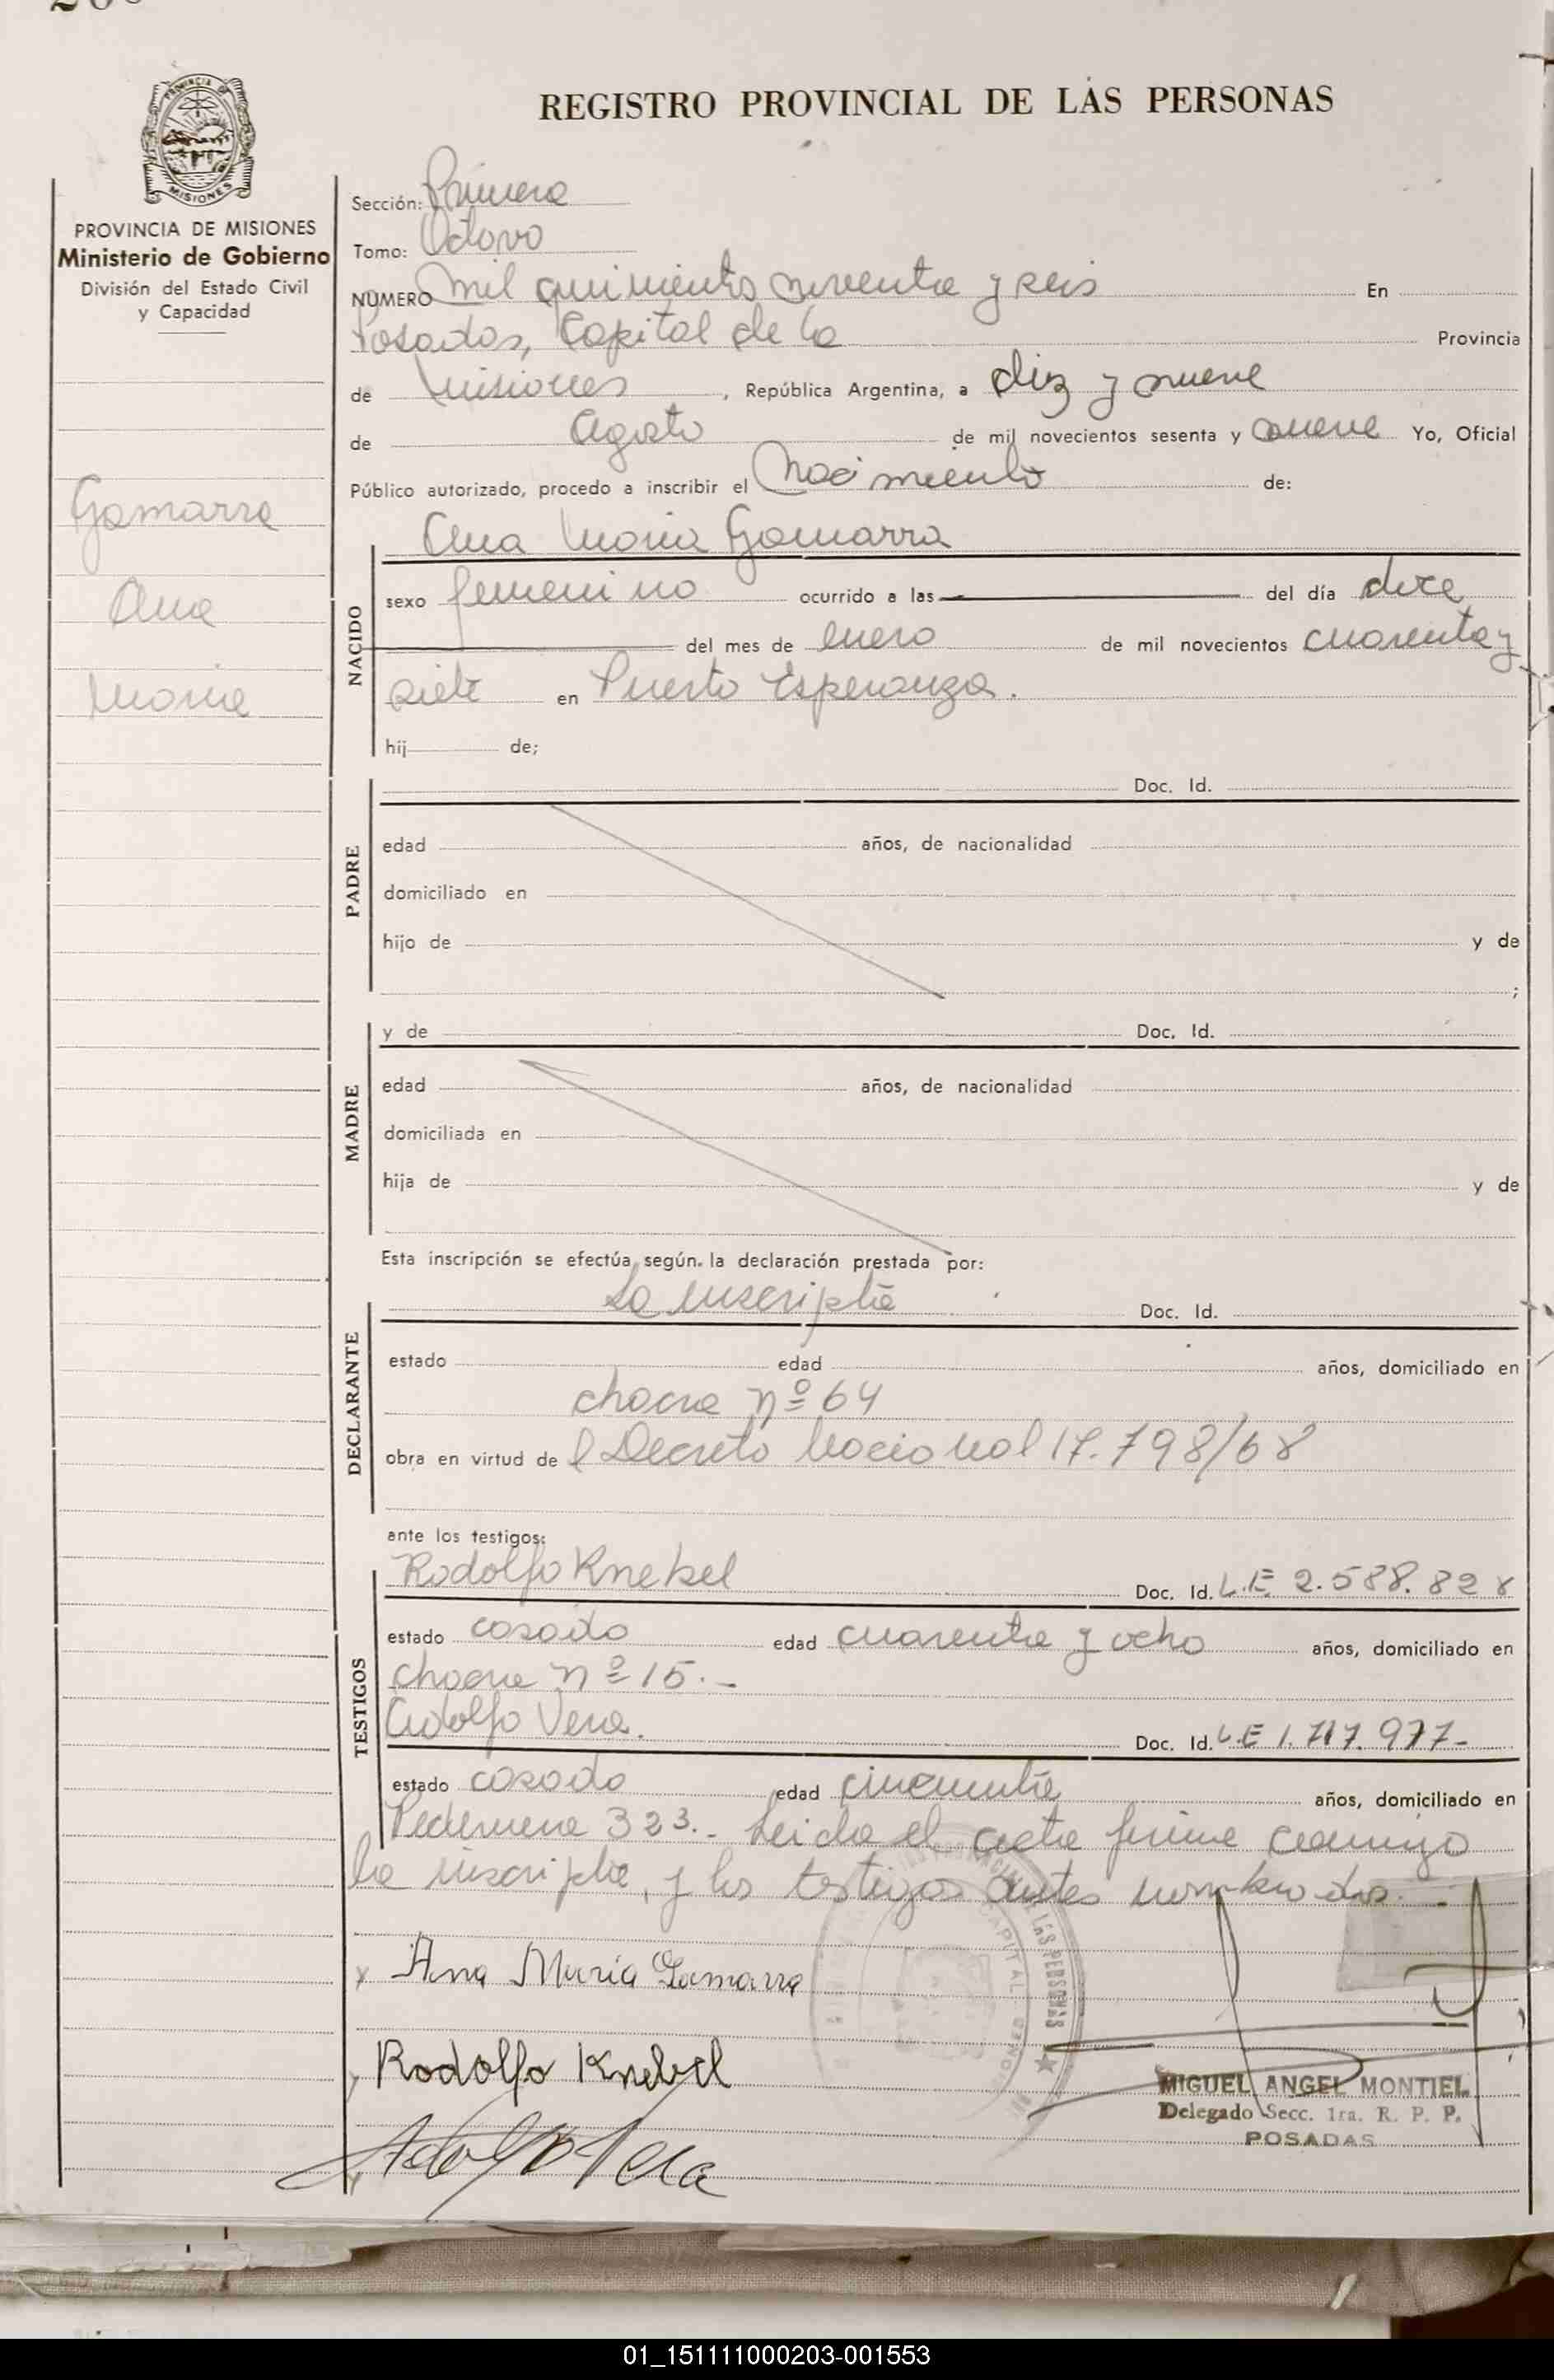 REGISTRO PROVINCIAL DE LAS PERSONAS
MISIONES
PROVINCIA DE MISIONES
Ministerio de Gobierno
División del Estado Civil
y Capacidad
Gamarra
Ana
Maria
Sección: Primera
Tomo: Octavo
NUMERO mil quinientos noventa y seis En
Posadas, Capital de la Provincia
de Misiones, República Argentina, a diez y nueve
de Agosto de mil novecientos sesenta y nueve Yo, Oficial
Público autorizado, procedo a inscribir el Nacimiento de:
NACIDO
Ana Maria Gamarra
sexo femenino ocurrido a las del día doce
del mes de enero de mil novecientos cuarenta y
siete en Puerto Esperanza.
hij de;
PADRE
Doc. Id.
edad años, de nacionalidad
domiciliado en
hijo de y de
;
MADRE
y de Doc. Id.
edad años, de nacionalidad
domiciliada en
hija de y de
Esta inscripción se efectúa según la declaración prestada por:
DECLARANTE
La inscripta Doc. Id.
estado edad años, domiciliado en
chacra nº 64
obra en virtud de l Decreto Nacional 17.798/68
ante los testigos:
TESTIGOS
Rodolfo Knebel Doc. Id. L.E. 2.588.828
estado casado edad cuarenta y ocho años, domiciliado en
chacra nº 15.-
Adolfo Vera. Doc. Id. L.E 1.717.977-
estado casado edad cincuenta años, domiciliado en
323.- Leida el acta firma conmigo
la inscripta, y los testigos antes nombrados.
x Ana María Gamarra
Rodolfo Knebel
Adolfo Vera
LAS PERSONAS
CAPITAL
MIGUEL ANGEL MONTIEL
Delegado Secc. 1ra. R. P. P.
POSADAS
01_151111000203-001553